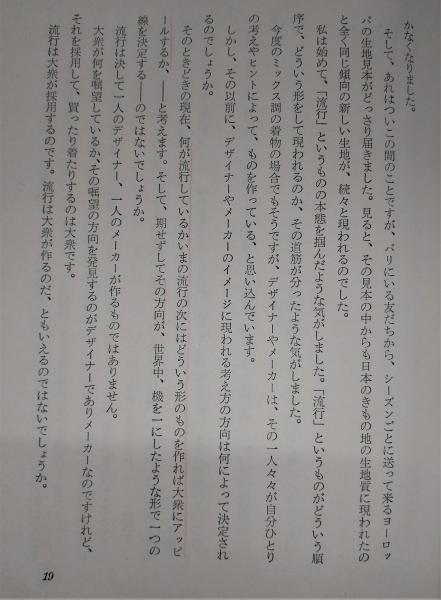 かなくなりました。
そして、あれはついこの間のことですが、パリにいる友だちから、シーズンごとに送って来るヨーロッ
パの生地見本がどっさり届きました。見ると、その見本の中からも日本のきもの地の生地質に現われたの
と全く同じ傾向の新しい生地が、続々と現われるのでした。
私は始めて、「流行」というものの本態を掴んだような気がしました。「流行」というものがどういう順
序で、どういう形をして現われるのか、その道筋が分ったような気がしました。
今度のミックス調の着物の場合でもそうですが、デザイナーやメーカーは、その一人々々が自分ひとり
の考えやヒントによって、ものを作っている、と思い込んでいます。
しかし、その以前に、デザイナーやメーカーのイメージに現われる考え方の方向は何によって決定され
るのでしょうか。
そのときどきの現在、何が流行しているかいまの流行の次にはどういう形のものを作れば大衆にアッピ
ールするか、――と考えます。そして、期せずしてその方向が、世界中、機を一にしたような形で一つの
線を決定する――のではないでしょうか。
流行は決して一人のデザイナー、一人のメーカーが作るものではありません。
大衆が何を嘱望しているか、その嘱望の方向を発見するのがデザイナーでありメーカーなのですけれど、
それを採用して、買ったり着たりするのは大衆です。
流行は大衆が採用するのです。流行は大衆が作るのだ、ともいえるのではないでしょうか。
19